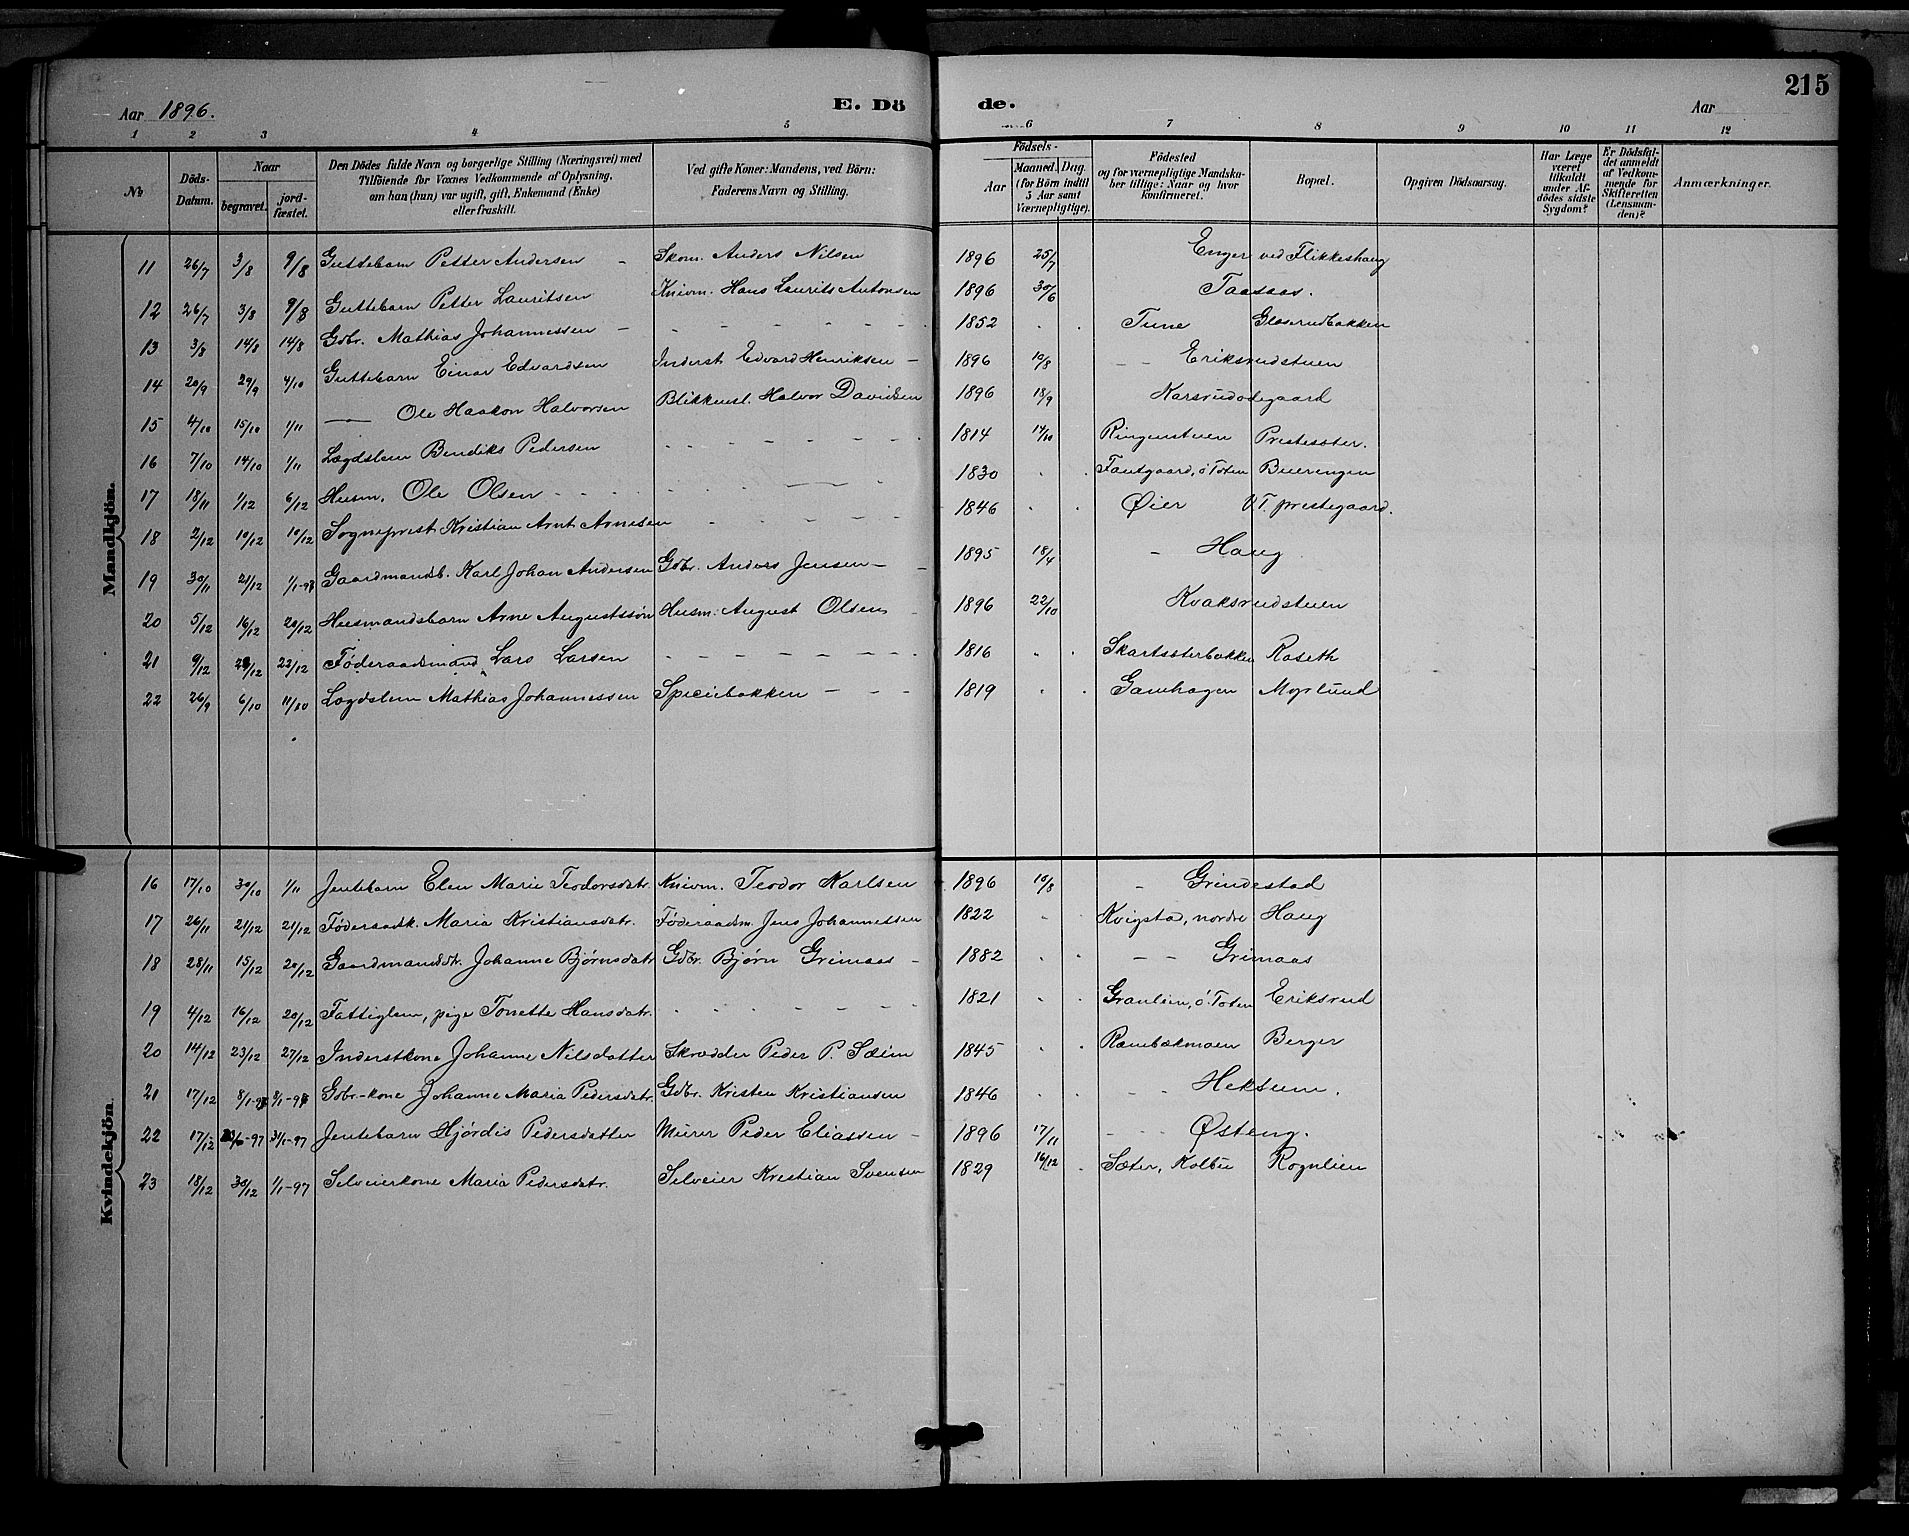 215
Aar 1896. E. Dö de. Aar
1 2 3 4 5 6 7 8 9 10 11 12
No Döds-Datum. Naar begravet. jord-fæstet. Den Dödes fulde Navn og borgerlige Stilling (Næringsvei) med Tilföiende for Voxnes Vedkommende af Oplysning, om han (hun) var ugift, gift, Enkemand (Enke) eller fraskilt. Ved gifte Koner: Mandens, ved Börn: Faderens Navn og Stilling. Födsels- Aar Maaned. Dag. (for Börn indtil 5 Aar samt Værnepligtige). Födested og for værnepligtige Mandskaber tillige: Naar og hvor konfirmeret. Bopæl. Opgiven Dödsaarsag. Har Læge været tilkaldt under Afdödes sidste Sygdom? Er Dödsfaldet anmeldt af Vedkommende for Skifteretten (Lensmanden)? Anmærkninger.
Mandkjön.
11 26/7 3/8 9/8 Guttebarn Petter Andersen - Skom. Anders Nilsen 1896 25/7 Enger ved Flikkeshaug
12 26/7 3/8 9/8 Guttebarn Petter Lauritsen Knivm. Hans Laurits Antonsen 1896 30/6 Taasaas.
13 3/8 14/8 14/8 Gdbr. Mathias Johannessen - 1852 Tune Glæserudbakken
14 20/9 29/9 4/10 Guttebarn Einar Edvardsen Inderst Edvard Henriksen - 1896 10/8 - - Eriksrudstuen
15 4/10 15/10 1/11 — Ole Haakon Halvorsen Blikkensl. Halvor Davidsen 1896 18/9 Karsrudødegaard
16 7/10 14/10 1/11 Lægdslem Bendiks Pedersen 1814 14/10 Ringenstuen Prestesæter.
17 18/11 1/12 6/12 Husm. Ole Olsen 1830 Fautgaard, ö Toten Buerengen
18 2/12 10/12 10/12 Sogneprest Kristian Arnt Arnesen 1846 Øier V T. prestegaard.
19 30/11 21/12 1/1-97 Gaardmandsb. Karl Johan Andersen Gdbr. Anders Jensen - 1895 18/4 - Haug
20 5/12 16/12 20/12 Husmandsbarn Arne Augustssøn Husm. August Olsen 1896 22/10 Kvaksrudstuen
21 9/12 22/12 22/12 Føderaadsmand Lars Larsen 1816 Skartsæterbakken Roseth
22 26/9 6/10 11/10 Lægdslem Mathias Johannessen Speciebakken - 1819 Gamhagen Myrlund
Kvindekjön.
16 17/10 30/10 1/11 Jentebarn Elen Marie Teodorsdatr. Knivm. Teodor Karlsen 1896 10/8 - Grindestad
17 26/11 21/12 21/12 Føderaadsk. Maria Kristiansdatr. Føderaadsm. Jens Johannessen 1822 Kvigstad, nordre Haug
18 28/11 15/12 20/12 Gaardmandsdtr. Johanne Bjørnsdatr Gdbr. Bjørn Grimaas - 1882 - - Grimaas
19 4/12 16/12 20/12 Fattiglem, pige Tonette Hansdatr. 1821 Granlien, ö. Toten Eriksrud
20 14/12 23/12 27/12 Inderstkone Johanne Nilsdatter Skrædder Peder P. Sæim 1845 Rambækmoen Berger
21 17/12 8/1-97 8/1-97 Gdbr-kone Johanne Maria Pedersdatr. Gdbr. Kristen Kristiansen 1846 - - Heksum.
22 17/12 -97 31/1-97 Jentebarn Hjørdis Pedersdatter Murer Peder Eliassen - 1896 17/11 - - Østeng.
23 18/12 30/12 1/1-97 Selveierkone Maria Pedersdatr. Selveier Kristian Svensen 1829 16/12 Sæter, Kolbu Rognlien